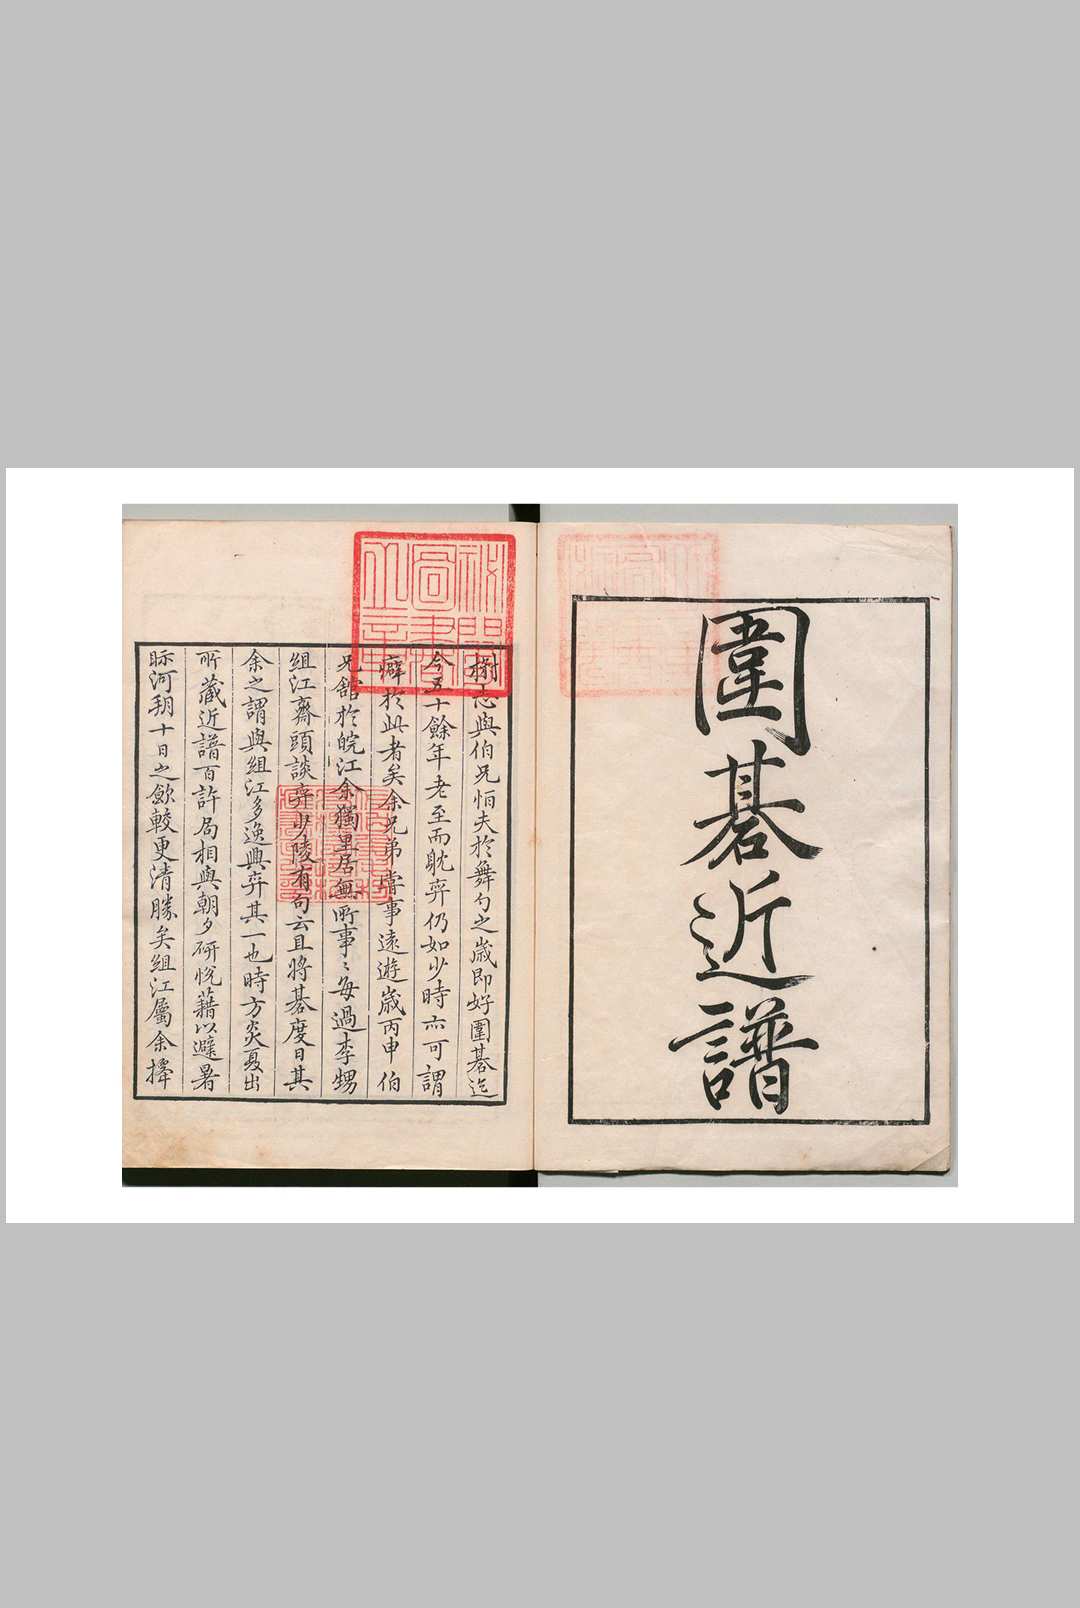 圍碁近譜
祕閣
圖書
之章
樹志與伯兄怕夫於舞勺之歲即好圍碁迄
今五十餘年老至而躭弈仍如少時亦可謂
癖於此者矣余兄弟嘗事遠遊歲丙申伯
兄館於皖江余獨里居無所事〻每過李甥
組江齋頭談弈少陵有句云且將碁度日其
余之謂與組江多逸興弈其一也時方炎夏出
所藏近譜百許局相與朝夕研悅藉以避暑
眎河朔十日之飲較更清勝矣組江屬余擇